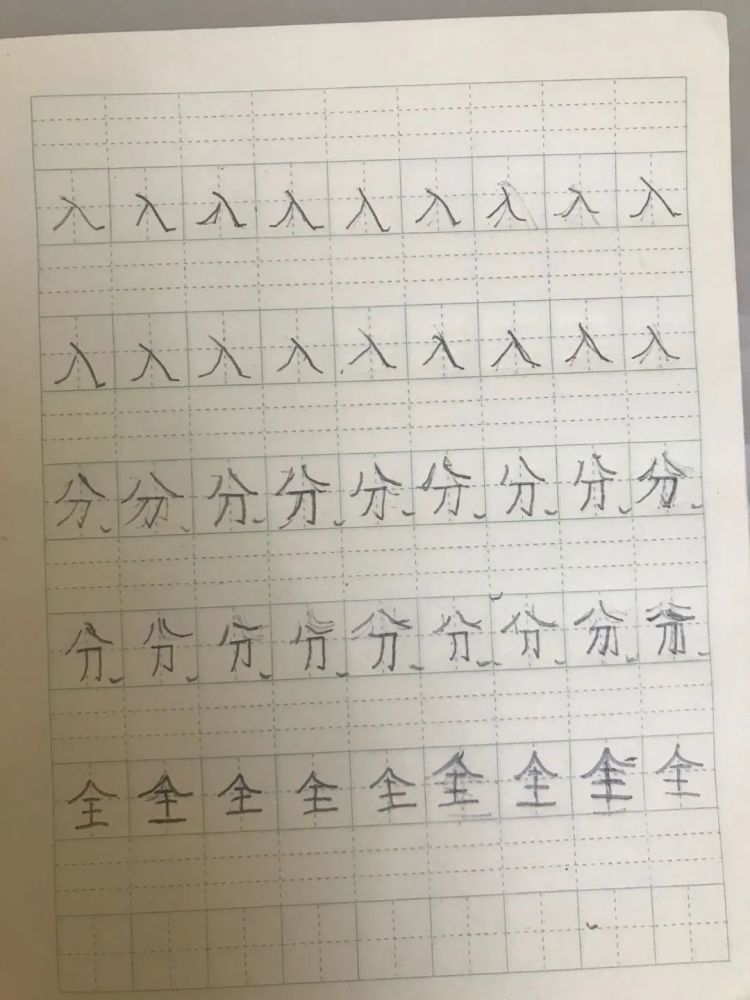 入入入入入入入入入
入入入入入入入入入
分分分分分分分分分
分分分分分分分分分
全全全全全全全全全